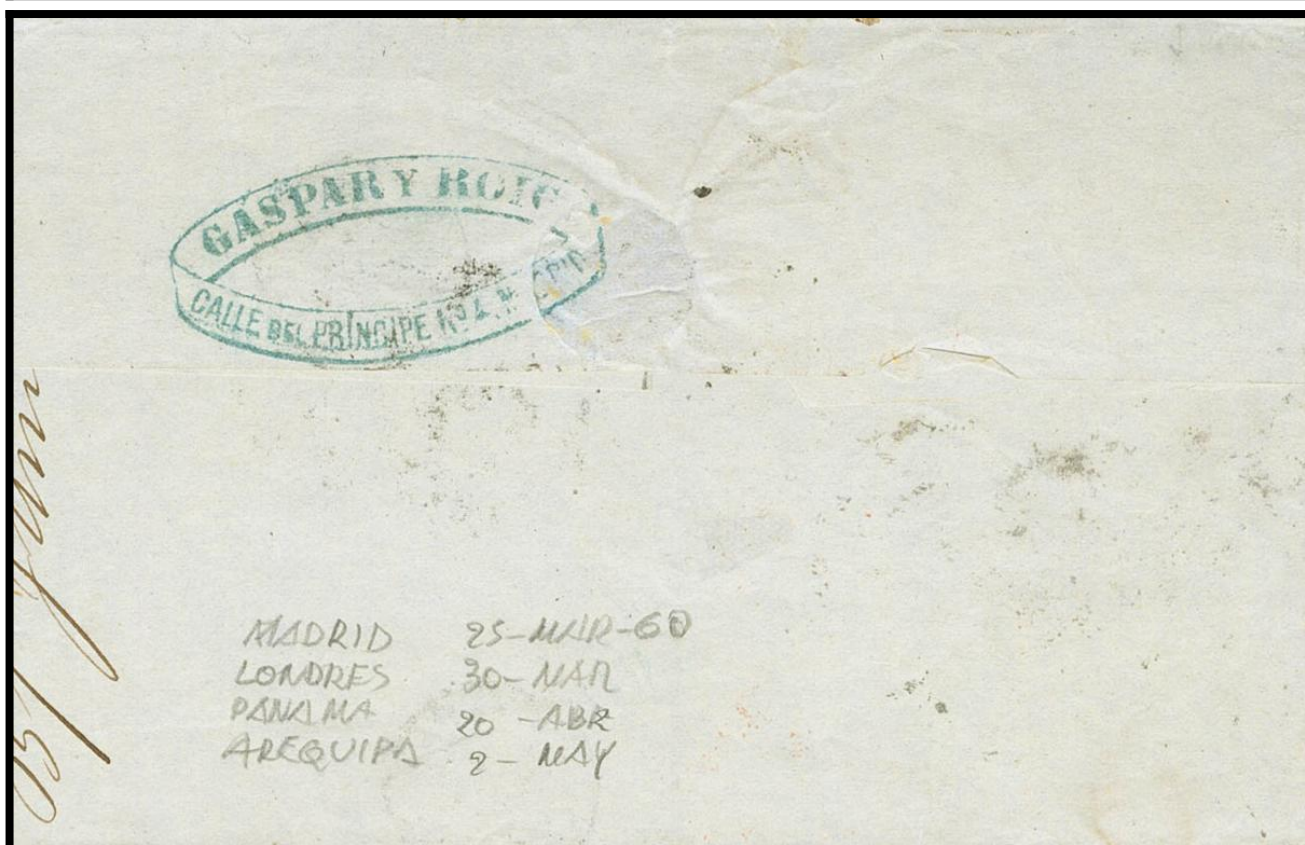 GASPAR Y ROIG
CALLE DEL PRINCIPE Nº 4.
MADRID 25-MAR-60
LONDRES 30-MAR
PANAMA 20-ABR
AREQUIPA 2-MAY